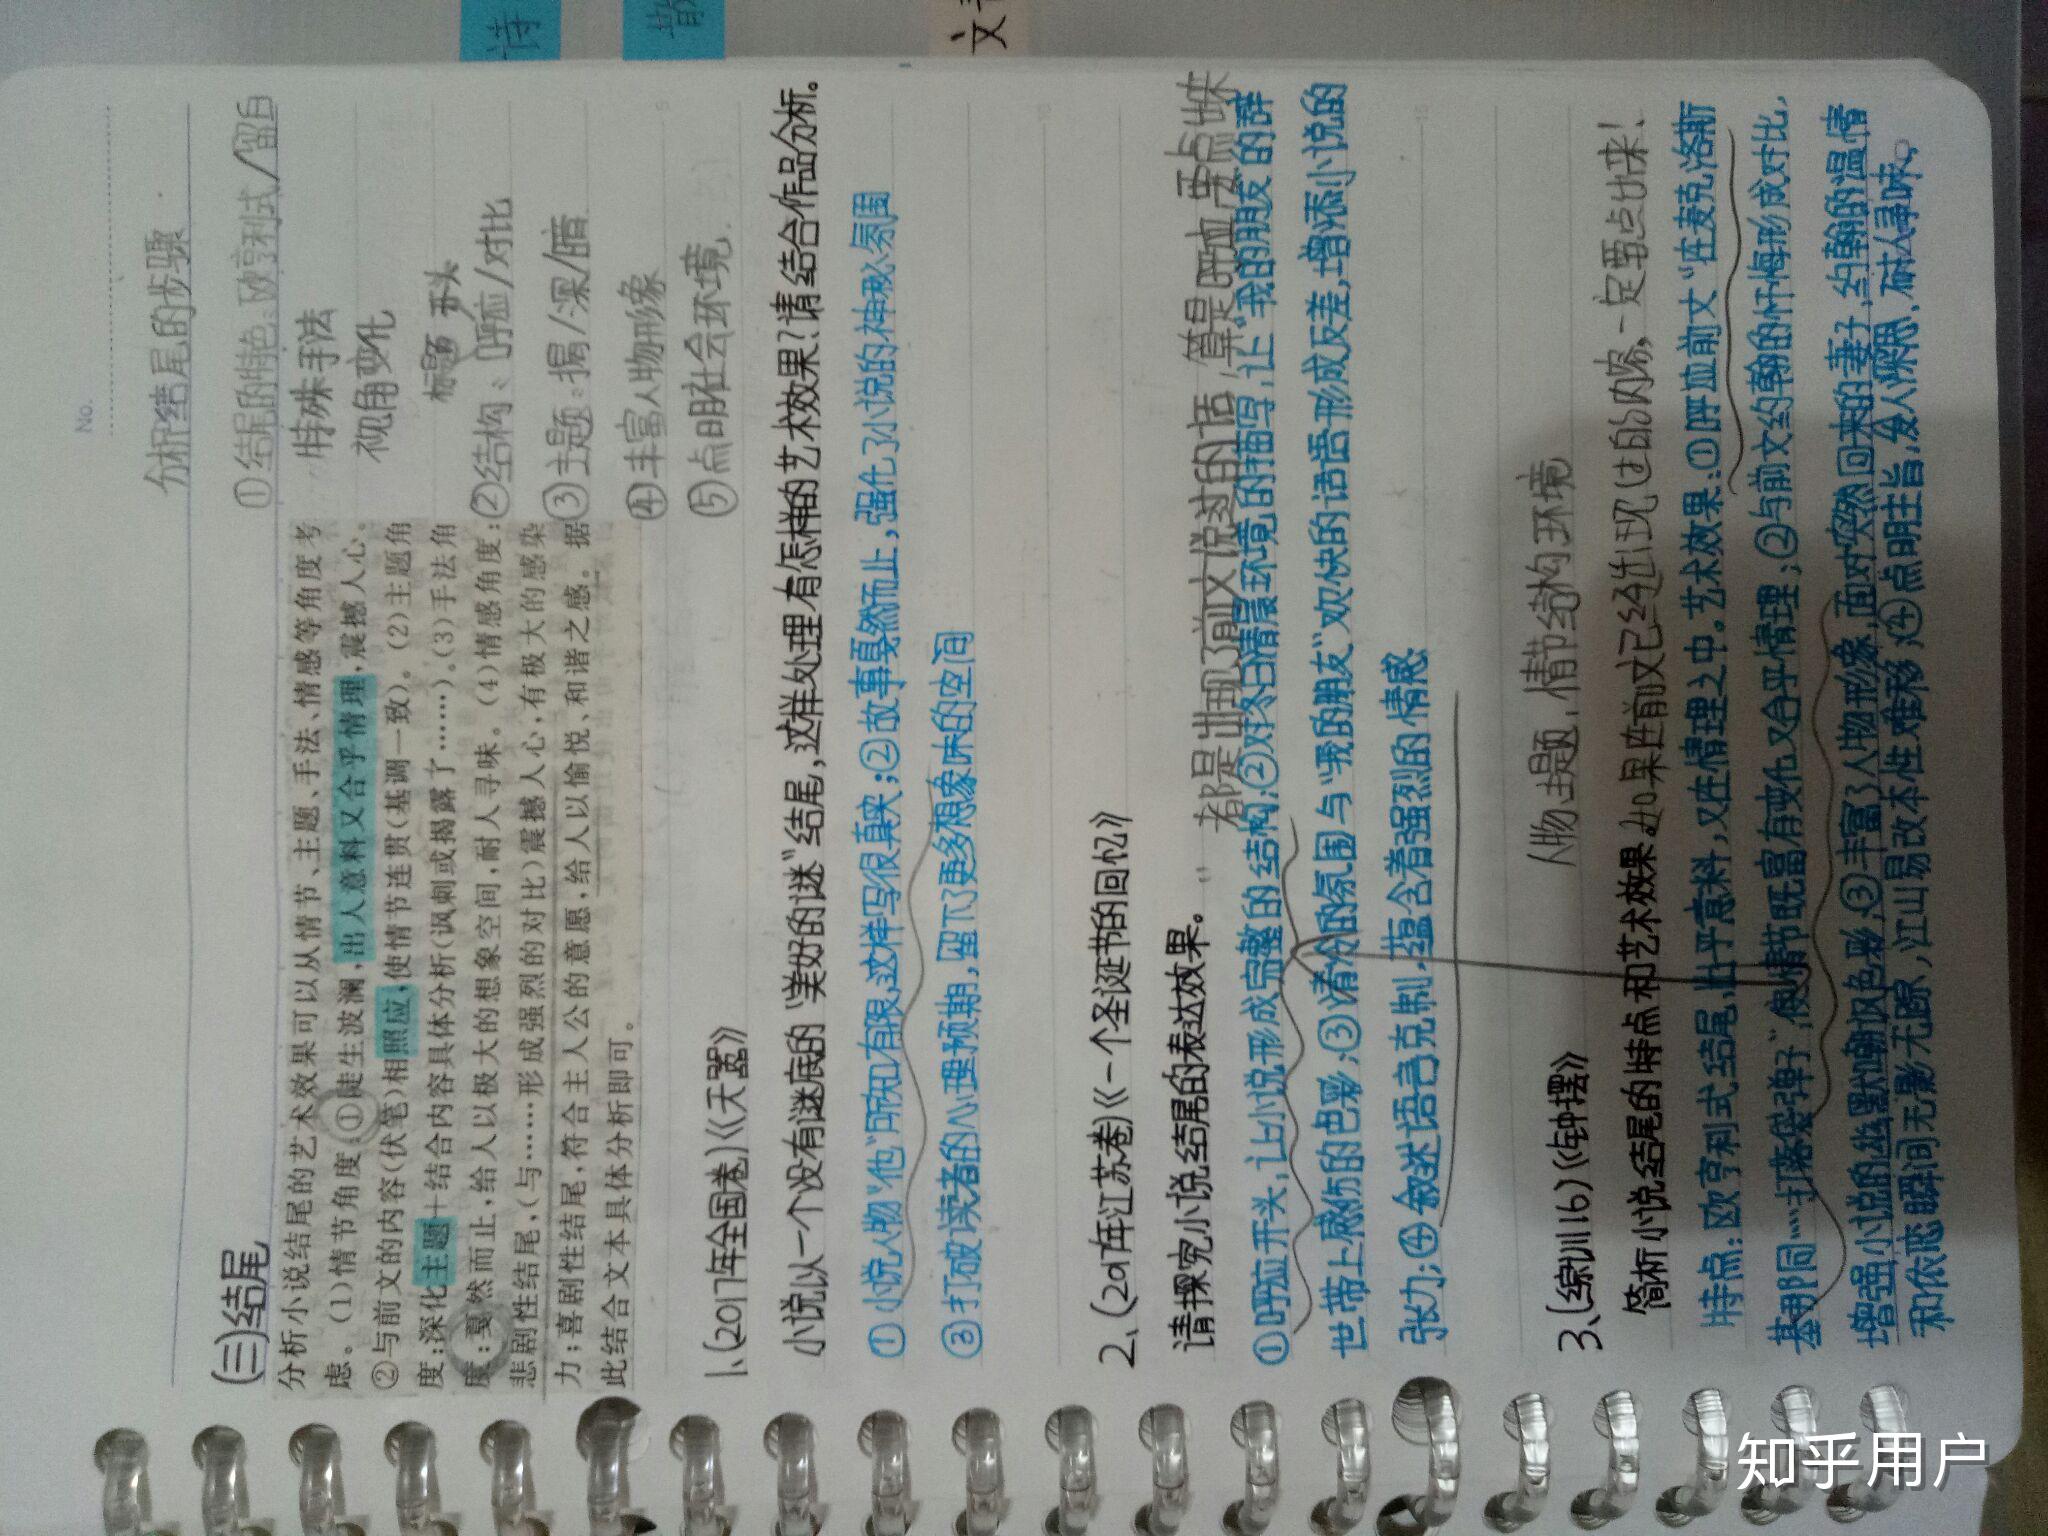 诗
散
文
No.
(三)结尾
分析小说结尾的艺术效果可以从情节、主题、手法、情感等角度考
虑。(1)情节角度:①陡生波澜,出人意料又合乎情理,震撼人心。
②与前文的内容(伏笔)相照应,使情节连贯(基调一致)。(2)主题角
度:深化主题+结合内容具体分析(讽刺或揭露了……)。(3)手法角
度:戛然而止,给人以极大的想象空间,耐人寻味。(4)情感角度:
悲剧性结尾,(与……形成强烈的对比)震撼人心,有极大的感染
力;喜剧性结尾,符合主人公的意愿,给人以愉悦、和谐之感。据
此结合文本具体分析即可。
分析结尾的步骤.
①结尾的特色:欧亨利式/留白
特殊手法
视角变化
标题 开头
②结构:呼应/对比
③主题:揭/深/暗
④丰富人物形象
⑤点明社会环境.
1、(2017年全国卷)《天嚣》
小说以一个没有谜底的"美好的谜"结尾,这样处理有怎样的艺术效果?请结合作品分析。
①小说人物"他"所知有限,这样写很真实;②故事戛然而止,强化了小说的神秘氛围
③打破读者的心理预期,留下了更多想象味的空间
2、(2017年江苏卷)《一个圣诞节的回忆》
请探究小说结尾的表达效果。
都是出现了前文说过的话,算是呼应,要点出来
①呼应开头,让小说形成完整的结构;②对冬日清晨环境的描写,让"我的朋友"的辞
世带上感伤的色彩;③清冷的氛围与"我的朋友"欢快的话语形成反差,增添小说的
张力;④叙述语言克制,蕴含着强烈的情感
人物主题,情节结构环境
3、(综训16)《钟摆》
简析小说结尾的特点和艺术效果 如果连前文已经出现过的内容,一定要点出来!
特点:欧亨利式结尾,出乎意料,又在情理之中。艺术效果:①呼应前文"在麦克洛斯
基那同……打落袋弹子",使情节既富有变化又合乎情理;②与前文约翰的忏悔形成对比,
增强小说的幽默嘲讽色彩,③丰富了人物形象,面对突然回来的妻子,约翰的温情
和依恋瞬间无影无踪,江山易改本性难移;④点明主旨,发人深思,耐人寻味。
知乎用户